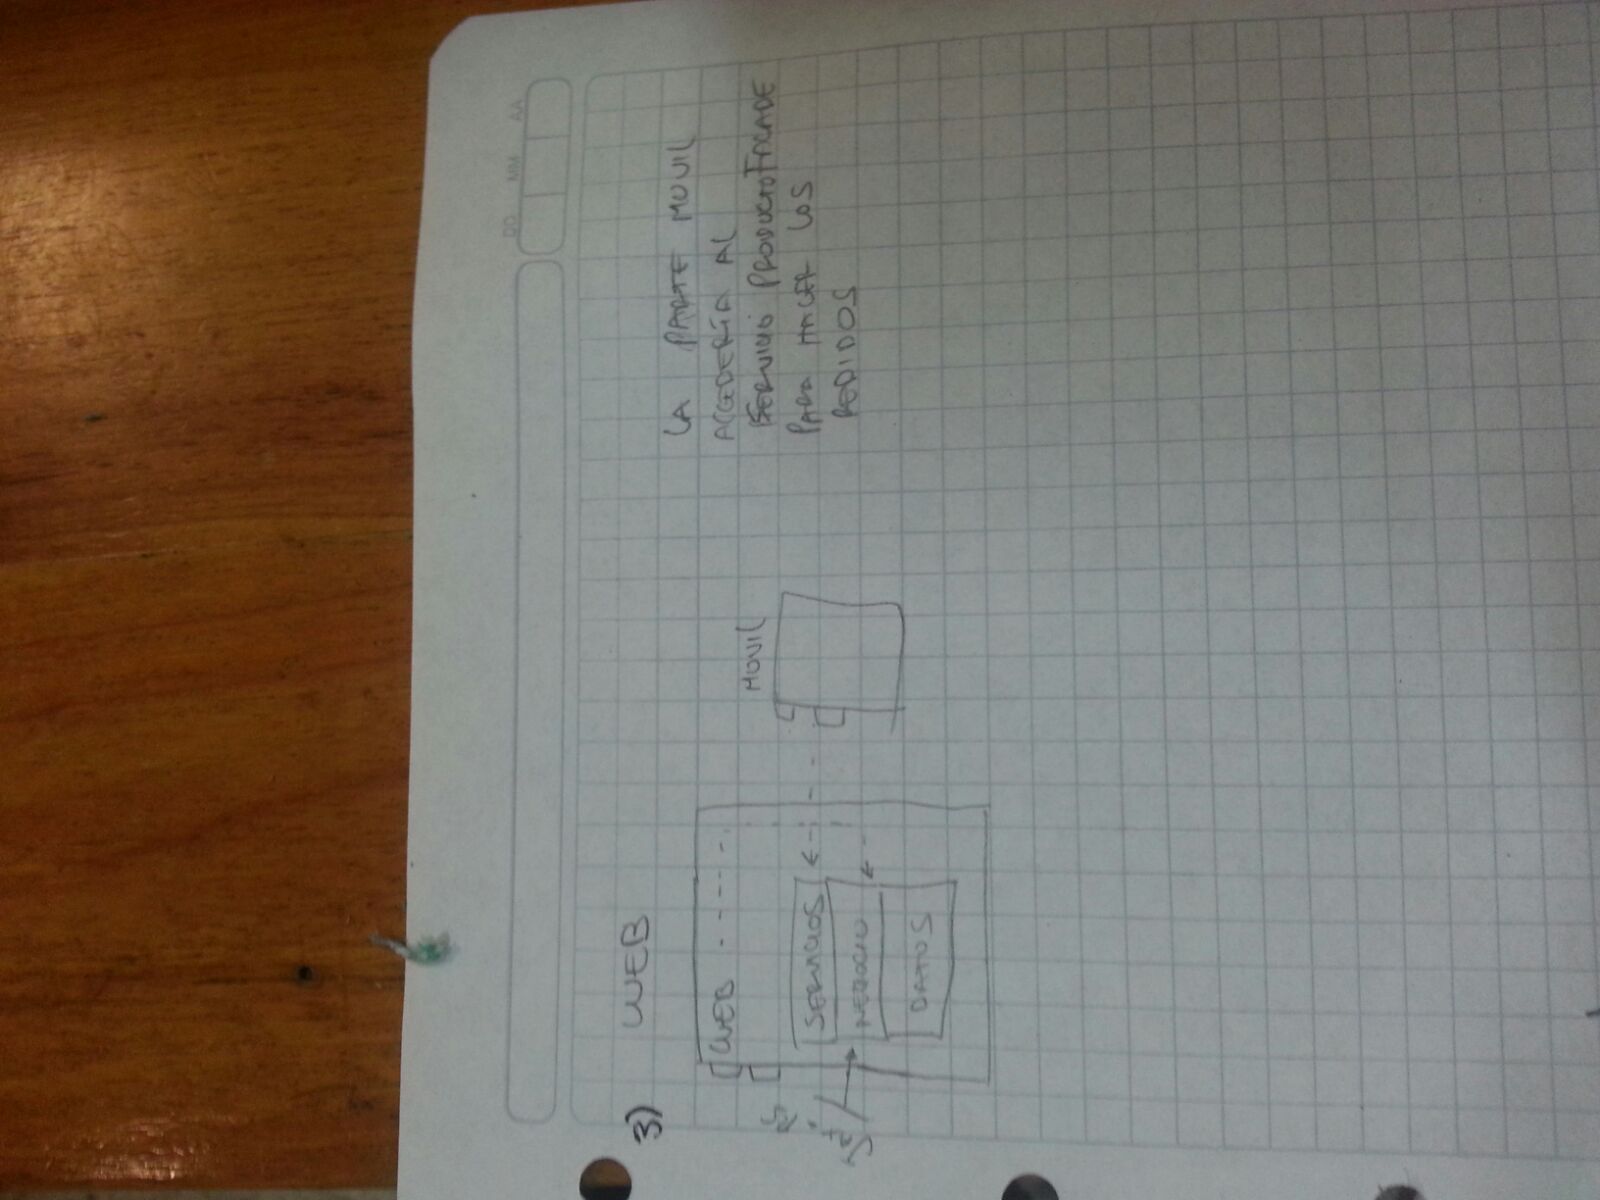 DD MM AA
3)
WEB
WEB
SERVICIOS
NEGOCIO
DATOS
MOVIL
LA PARTE MOVIL
ACCEDERÍA AL
SERVICIO PRODUCTOFACADE
PARA HACER LOS
PEDIDOS